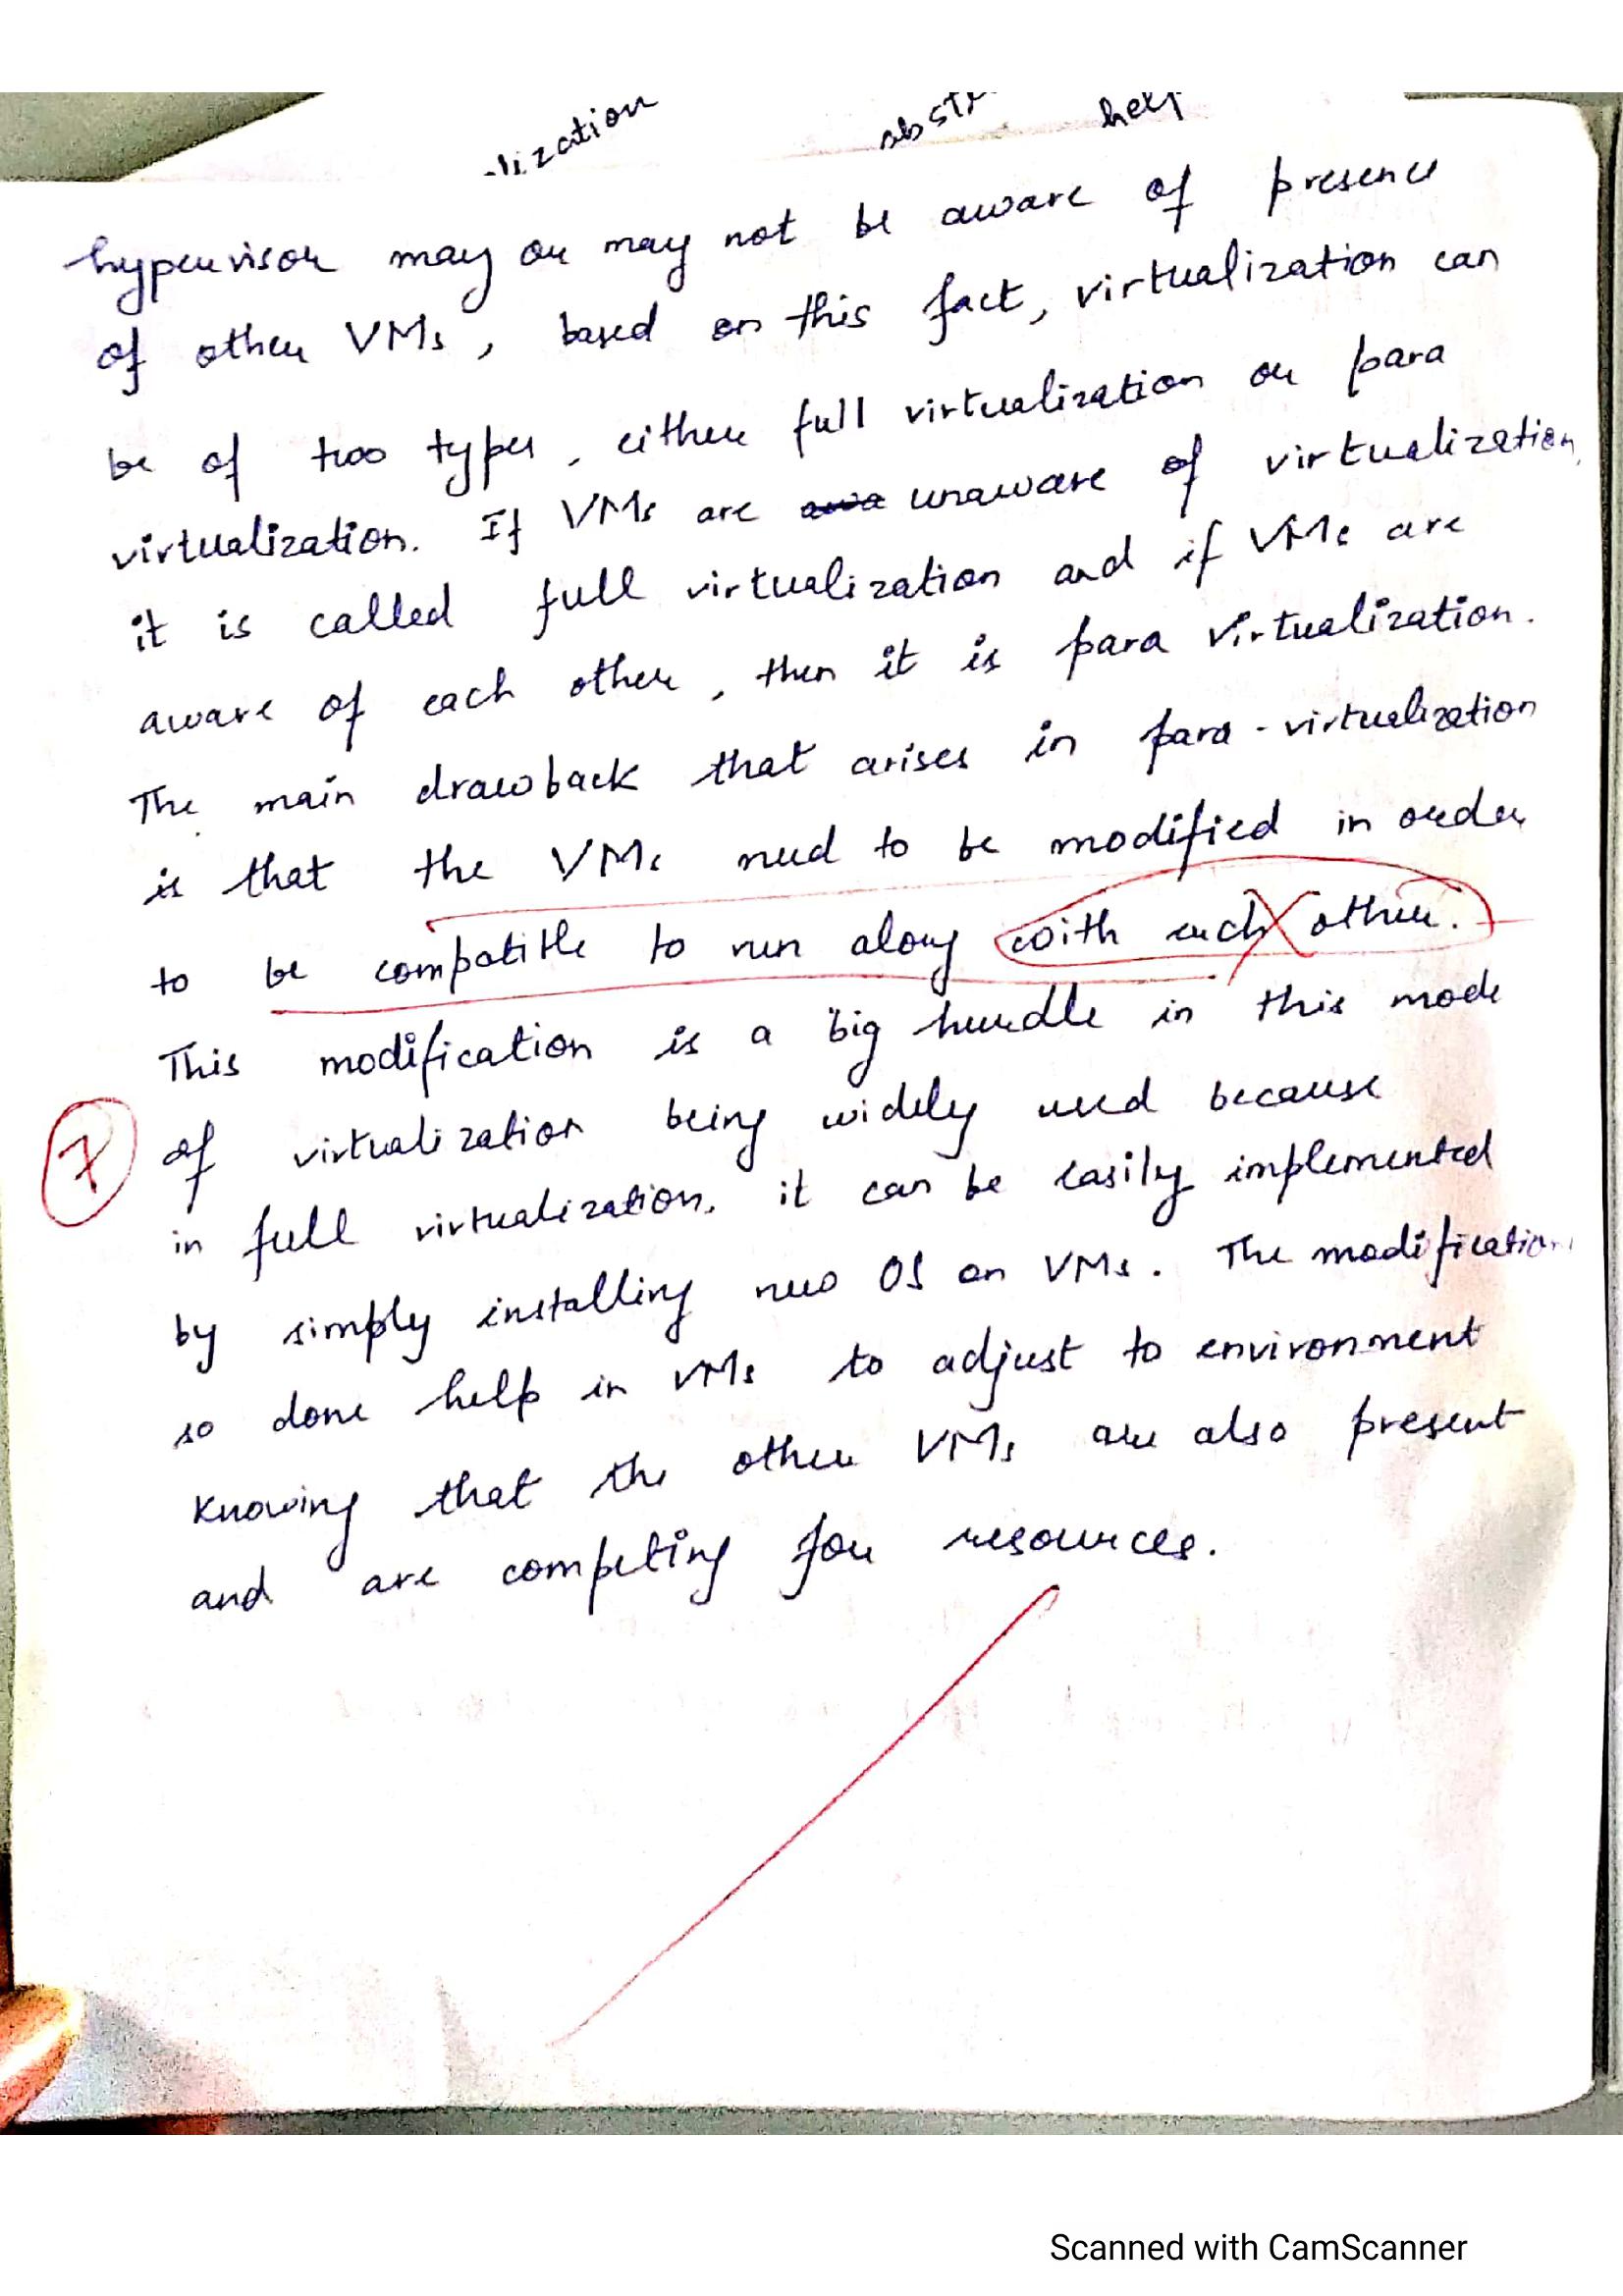 lization abst help
hypervisor may or may not be aware of presence
of other VMs, based on this fact, virtualization can
be of two types, either full virtualization or para
virtualization. If VMs are unaware of virtualization,
it is called full virtualization and if VMs are
aware of each other, then it is para virtualization.
The main drawback that arises in para-virtualization
is that the VMs need to be modified in order
to be compatible to run along with each other.
This modification is a big hurdle in this mode
7 of virtualization being widely used because
in full virtualization, it can be easily implemented
by simply installing new OS on VMs. The modification
so done help in VMs to adjust to environment
knowing that the other VMs are also present
and are competing for resources.
Scanned with CamScanner